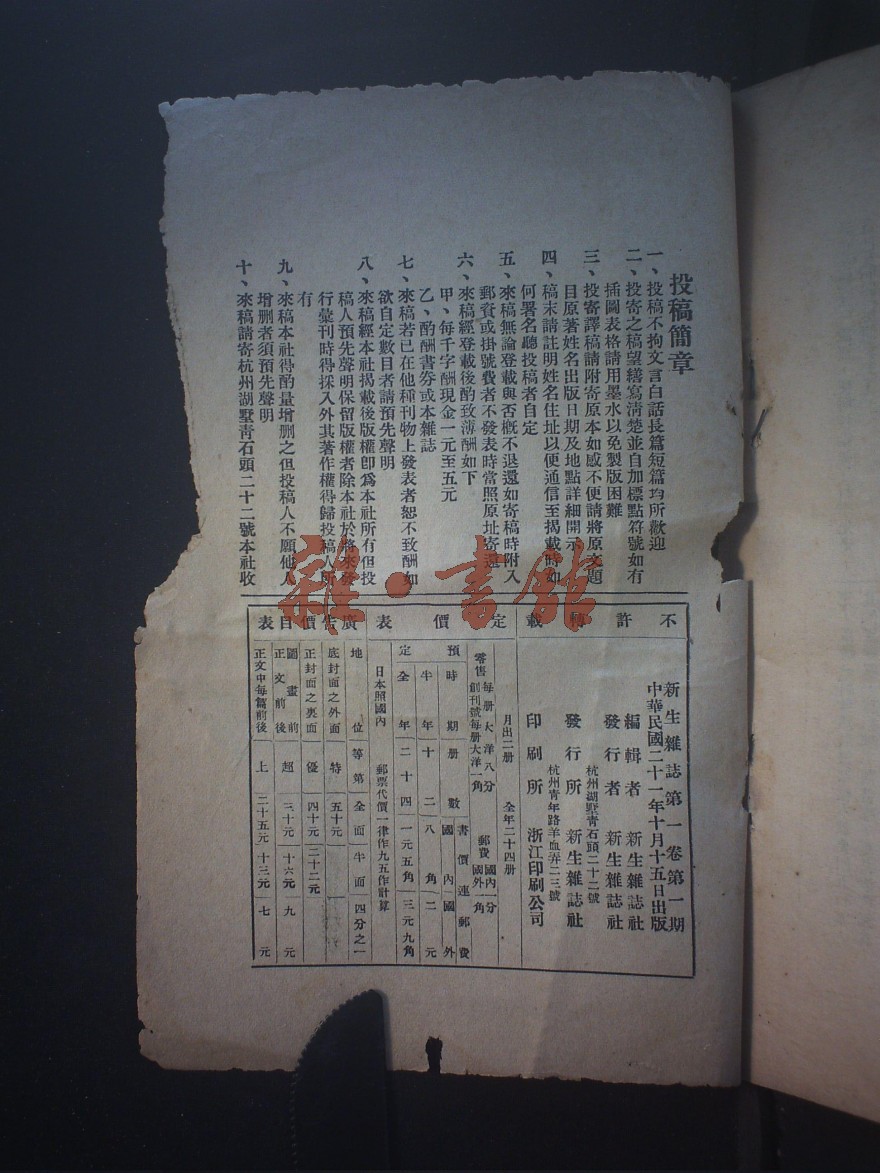 投稿簡章
一、投稿不拘文言白話長篇短篇均所歡迎
二、投寄之稿望繕寫清楚並自加標點符號如有
插圖表格請用墨水以免製版困難
三、投寄譯稿請附寄原本如感不便請將原文題
目原著姓名出版日期及地點詳細開示
四、稿末請註明姓名住址以便通信至揭載時如
何署名聽投稿者自定
五、來稿無論登載與否概不退還如寄稿時附入
郵資或掛號費者不發表時當照原址寄還
六、來稿經登載後酌致薄酬如下
甲、每千字酬現金一元至五元
乙、酌酬書券或本雜誌
七、來稿若已在他種刊物上發表者恕不致酬如
欲自定數目者請預先聲明
八、來稿經本社揭載後版權卽爲本社所有但投
稿人預先聲明保留版權者除本社於將來發
行彙刊時得採入外其著作權得歸投稿人所
有
九、來稿本社得酌量增删之但投稿人不願他人
增删者須預先聲明
十、來稿請寄杭州湖墅青石頭二十二號本社收
不許轉載
新生雜誌第一卷第一期
中華民國二十一年十月十五日出版
編輯者 新生雜誌社
發行者 新生雜誌社
杭州湖墅青石頭二十二號
發行所 新生雜誌社
杭州青年路羊血弄二三號
印刷所 浙江印刷公司
定價表
月出二册 全年二十四册
零售 每册大洋八分 郵費 國內一分
創刊號每册大洋一角 國外一角
預定
時期 册數 書價連郵費
國內 國外
半年 十二 八角 二元
全年 二十四 一元五角 三元九角
日本照國內 郵票代價一律作九五作計算
廣告價目表
地位 等第 全面 半面 四分之一
底封面之外面 特 五十元
正封面之裏面 優 四十元 二十二元
圖畫前 正文前後 超 三十元 十六元 九元
正文中每篇前後 上 二十五元 十三元 七元
雜·書館